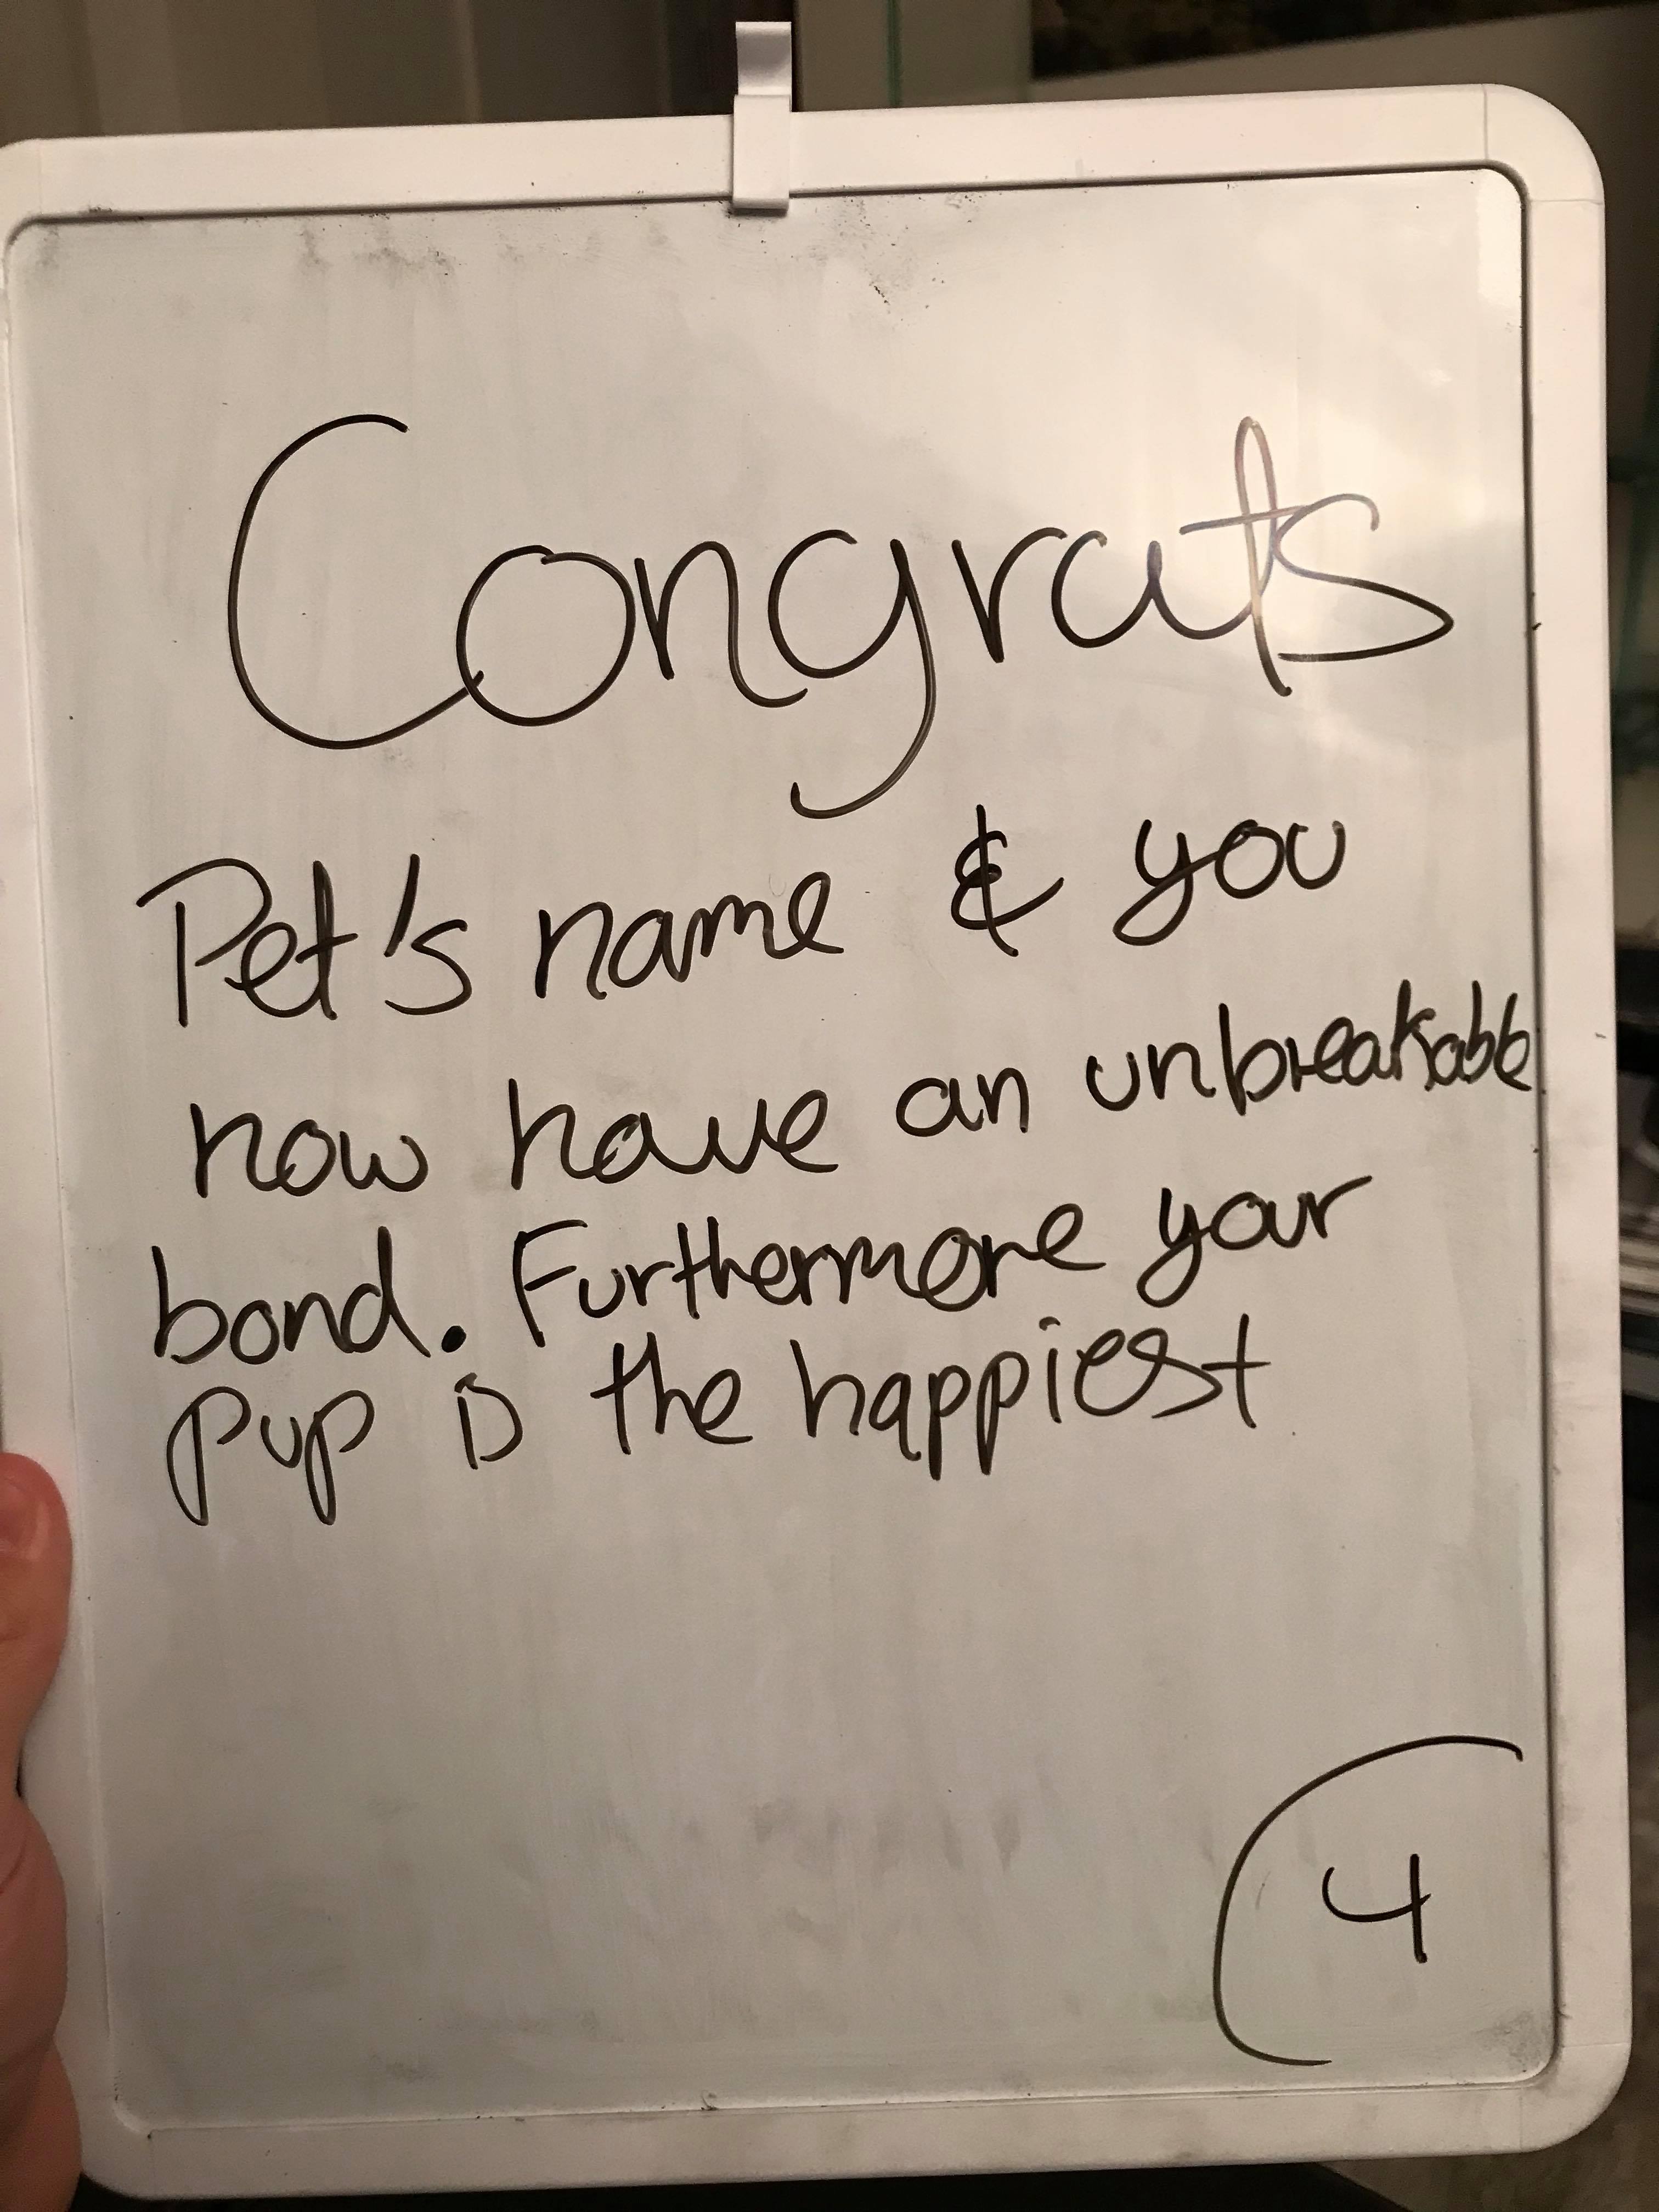 Congrats
Pet's name & you
now have an unbreakable
bond. Furthermore your
pup is the happiest
4